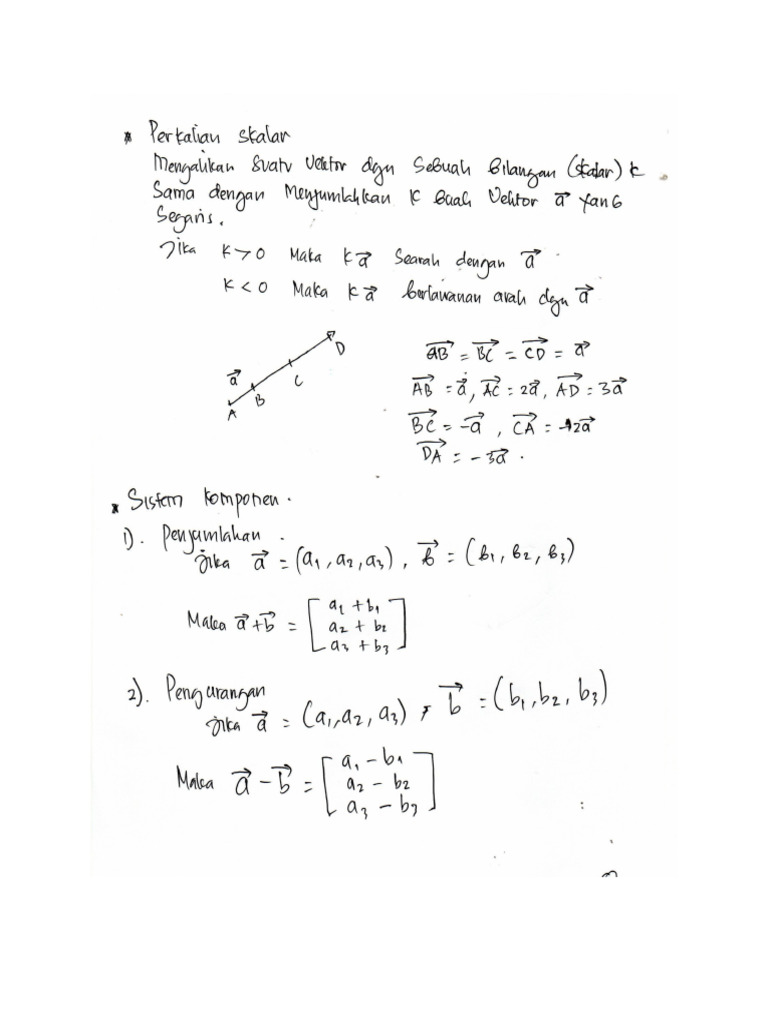 * Perkalian skalar
Mengalikan Suatu Vektor dgn Sebuah Bilangan (skalar) k
Sama dengan Menjumlahkan K Buah Vektor a⃗ yang
Segaris.
Jika K > 0 Maka k a⃗ Searah dengan a⃗
K < 0 Maka k a⃗ berlawanan arah dgn a⃗
a⃗
A B C D
AB⃗ = BC⃗ = CD⃗ = a⃗
AB⃗ = a⃗, AC⃗ = 2a⃗, AD⃗ = 3a⃗
BC⃗ = -a⃗, CA⃗ = -2a⃗
DA⃗ = -3a⃗.
* Sistem Komponen.
1). Penjumlahan.
Jika a⃗ = (a1, a2, a3), b⃗ = (b1, b2, b3)
Maka a⃗ + b⃗ = [a1 + b1
a2 + b2
a3 + b3]
2). Pengurangan
Jika a⃗ = (a1, a2, a3), b⃗ = (b1, b2, b3)
Maka a⃗ - b⃗ = [a1 - b1
a2 - b2
a3 - b3]